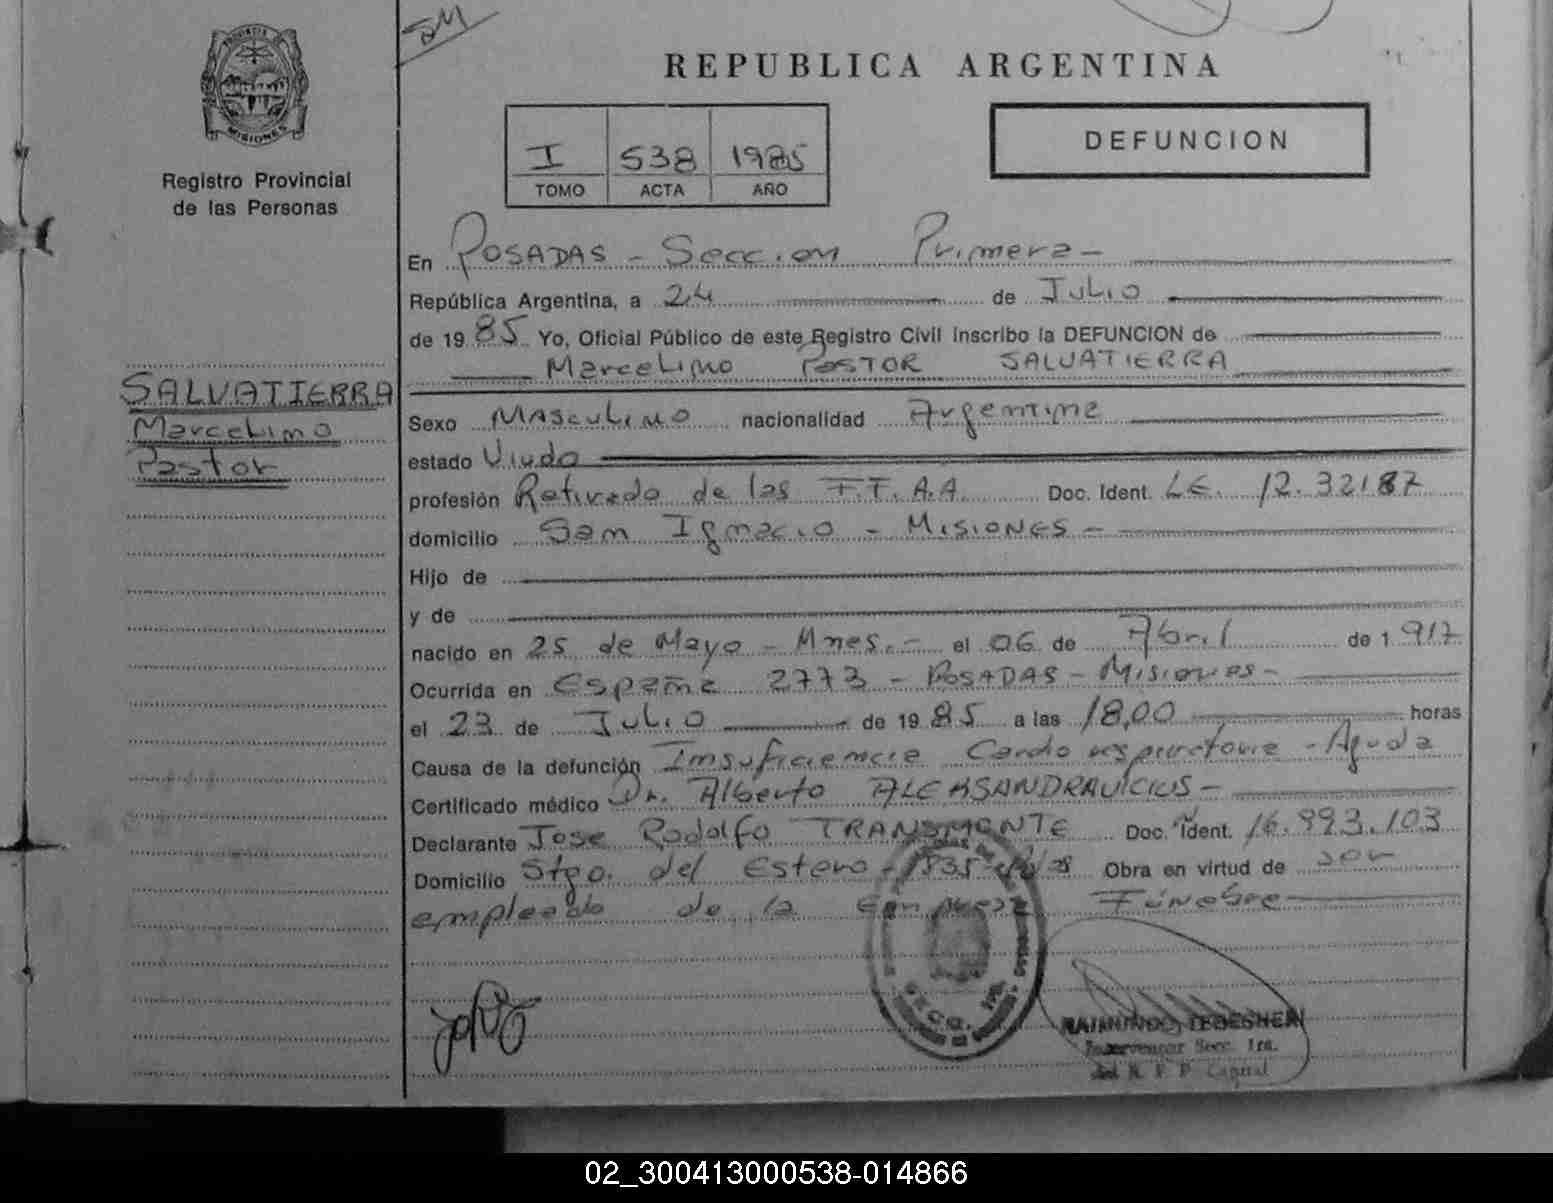 SM
PROVINCIA DE
MISIONES
Registro Provincial
de las Personas
SALVATIERRA
Marcelino
Pastor
REPUBLICA ARGENTINA
I 538 1985
TOMO ACTA AÑO
DEFUNCION
En POSADAS - Seccion Primera -
República Argentina, a 24 de Julio
de 1985 Yo, Oficial Público de este Registro Civil inscribo la DEFUNCION de
Marcelino Pastor SALVATIERRA
Sexo Masculino nacionalidad Argentina
estado Viudo
profesión Retirado de las F.F.A.A. Doc. Ident. L.E. 12.32187
domicilio San Ignacio - Misiones -
Hijo de
y de
nacido en 25 de Mayo - Mnes. - el 06 de Abril de 1.917
Ocurrida en España 2773 - POSADAS - Misiones -
el 23 de Julio de 1985 a las 18,00 horas
Causa de la defunción Insuficiencia Cardio respiratoria - Aguda
Certificado médico Dr. Alberto ALEKSANDRAVICIUS -
Declarante Jose Rodolfo TRANSMONTE Doc. Ident. 16.993.103
Domicilio Stgo. del Estero - 1835 Obra en virtud de ser
empleado de la Empresa Fúnebre
RAIMUNDO
Interventor Secc. 1ra.
del R. P. P. Capital
02_300413000538-014866